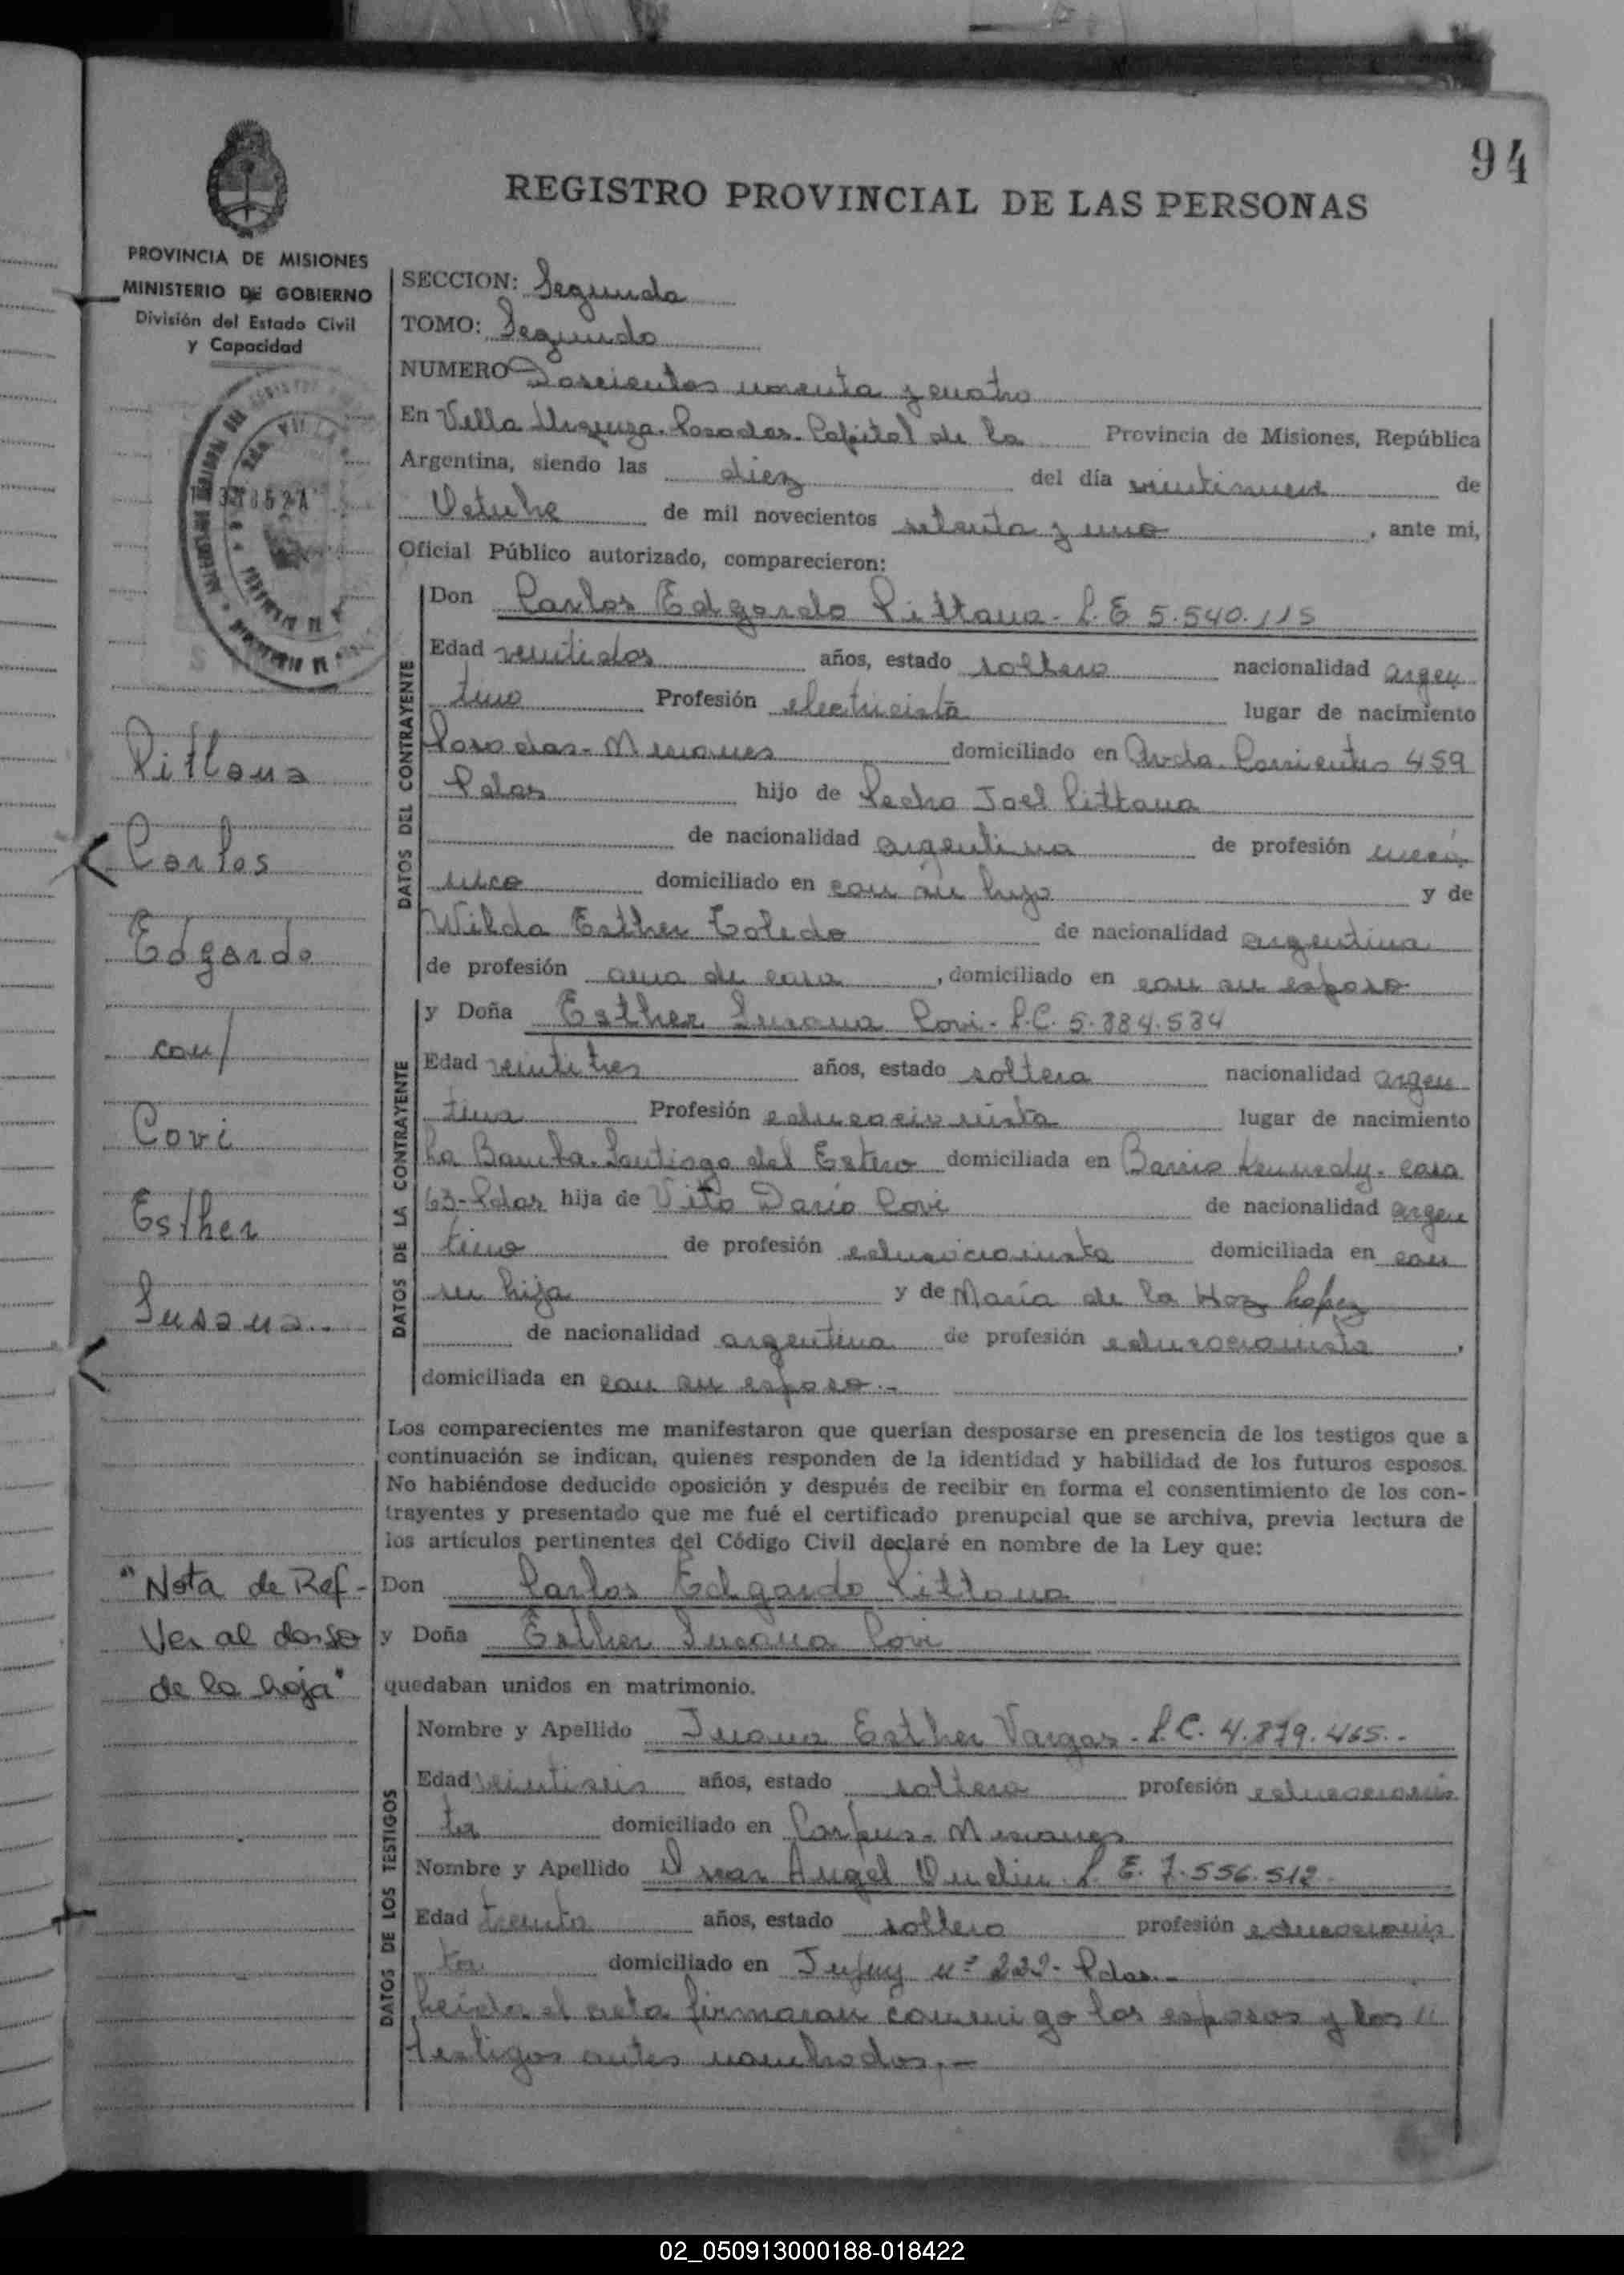 94
REGISTRO PROVINCIAL DE LAS PERSONAS
PROVINCIA DE MISIONES
MINISTERIO DE GOBIERNO
División del Estado Civil
y Capacidad
SECCION: Segunda
TOMO: Segundo
NUMERO Doscientos noventa y cuatro
En Villa Urquiza. Posadas. Capital de la Provincia de Misiones, República
Argentina, siendo las diez del día veintinueve de
Octubre de mil novecientos setenta y uno, ante mi,
Oficial Público autorizado, comparecieron:
DATOS DEL CONTRAYENTE
Don Carlos Edgardo Pittana - L.E 5.540.115
Edad veintidos años, estado soltero nacionalidad argen
tino Profesión electricista lugar de nacimiento
Posadas - Misiones domiciliado en Avda. Corrientes 459
Pdas hijo de Pedro Joel Pittana
de nacionalidad argentina de profesión mecá
nico domiciliado en con su hijo y de
Wilda Esther Toledo de nacionalidad argentina
de profesión ama de casa, domiciliado en con su esposo
DATOS DE LA CONTRAYENTE
y Doña Esther Susana Covi - L.C. 5.884.584
Edad veintitres años, estado soltera nacionalidad argen
tina Profesión educacionista lugar de nacimiento
La Banda. Santiago del Estero domiciliada en Barrio Kennedy. casa
63 - Pdas hija de Vito Dario Covi de nacionalidad argen
tino de profesión educacionista domiciliada en con
su hija y de María de la Hoz Lopez
de nacionalidad argentina de profesión educacionista,
domiciliada en con su esposo.-
Los comparecientes me manifestaron que querían desposarse en presencia de los testigos que a
continuación se indican, quienes responden de la identidad y habilidad de los futuros esposos.
No habiéndose deducido oposición y después de recibir en forma el consentimiento de los con-
trayentes y presentado que me fué el certificado prenupcial que se archiva, previa lectura de
los artículos pertinentes del Código Civil declaré en nombre de la Ley que:
Don Carlos Edgardo Pittana
y Doña Esther Susana Covi
quedaban unidos en matrimonio.
DATOS DE LOS TESTIGOS
Nombre y Apellido Juana Esther Vargas - L.C. 4.879.465.-
Edad veintiseis años, estado soltera profesión educacionis
ta domiciliado en Corpus - Misiones
Nombre y Apellido Oscar Angel Ondin L.E. 7.556.512.
Edad treinta años, estado soltero profesión educacionis
ta domiciliado en Jujuy nº 222 - Pdas.-
Leida el acta firmaran conmigo los esposos y los "
testigos antes nombrados.-
Pittana
Carlos
Edgardo
con/
Covi
Esther
Susana..
"Nota de Ref -
Ver al dorso
de la hoja"
02_050913000188-018422